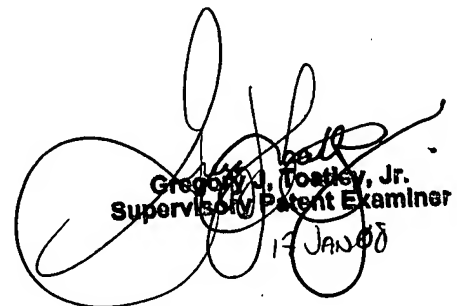 Gregory J. Toatley, Jr.
Supervisory Patent Examiner
17 JAN 08